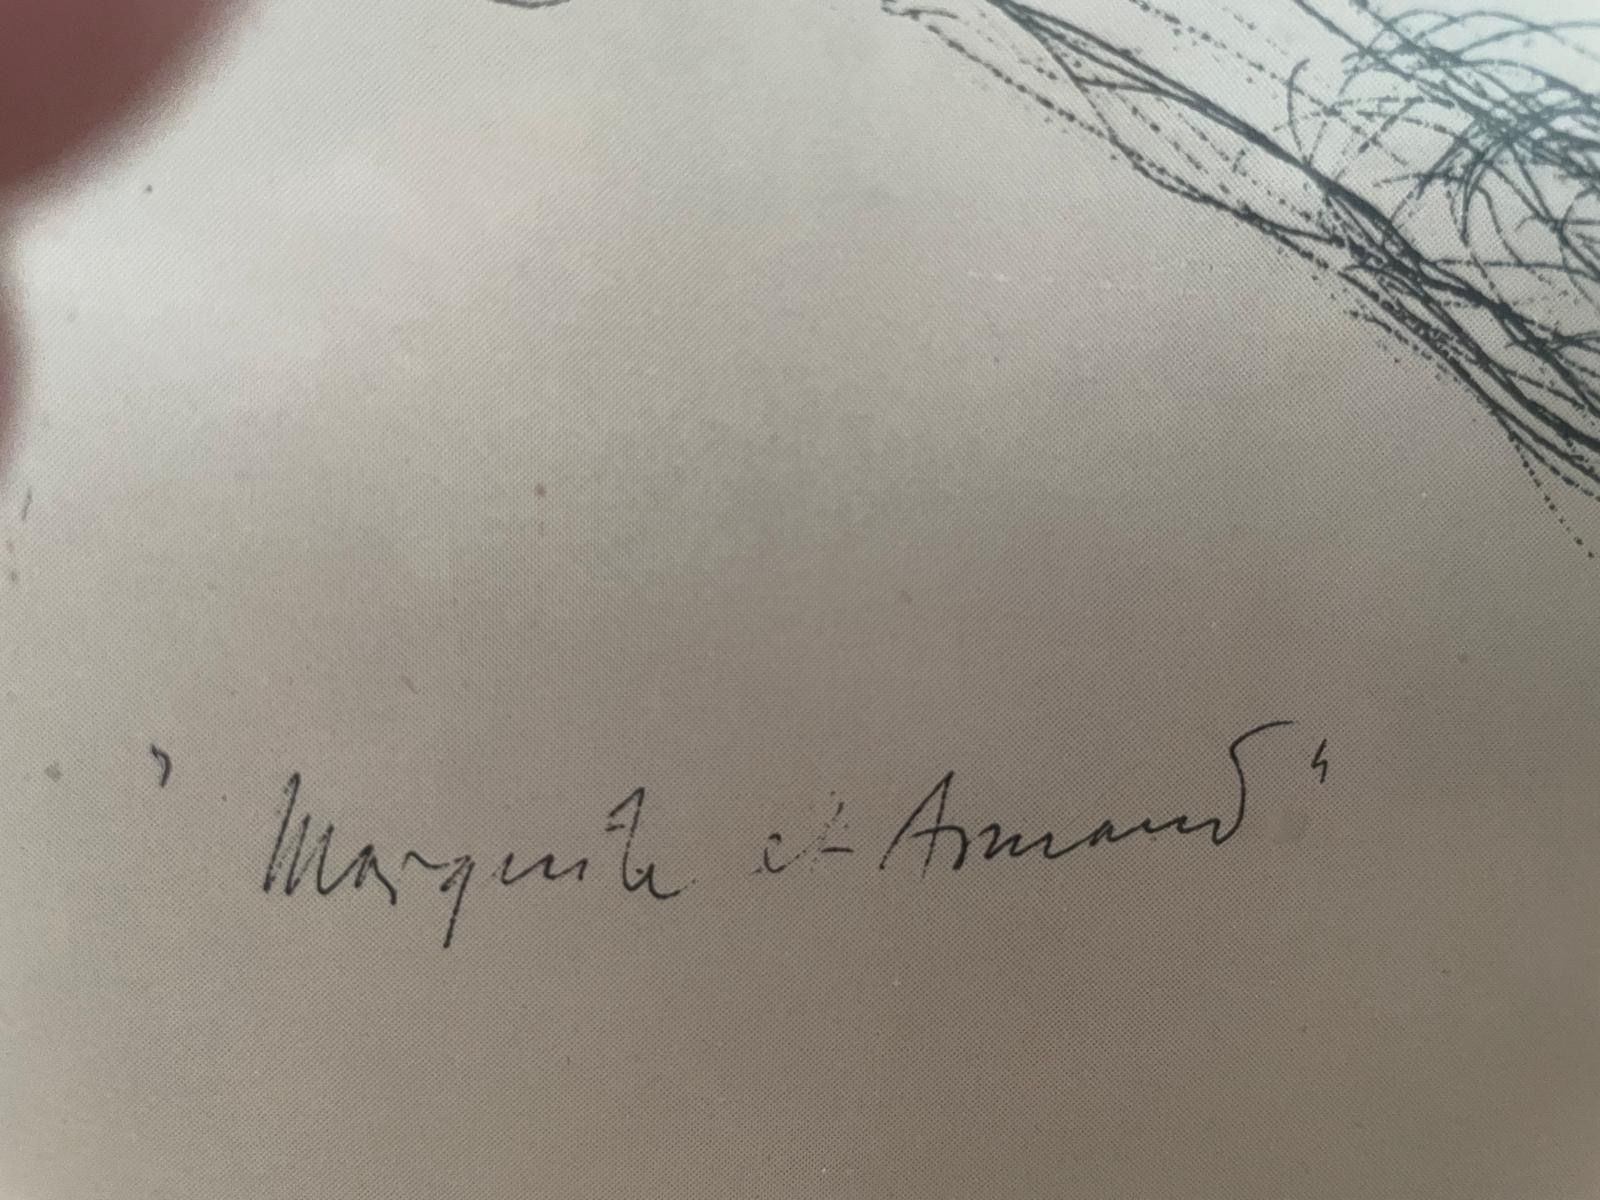 " Marguerite et Armand "